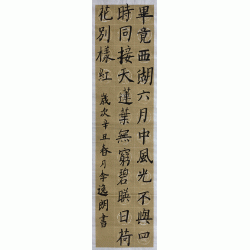 畢竟西湖六月中風光不與四
時同接天蓮葉無窮碧暎日荷
花別樣紅
歲次辛丑春月逸朗書